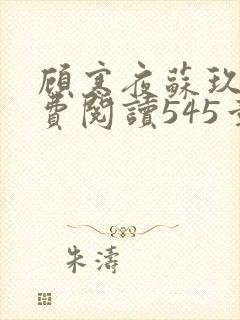 顧寒夜蘇玖
費閱讀545
朱濤